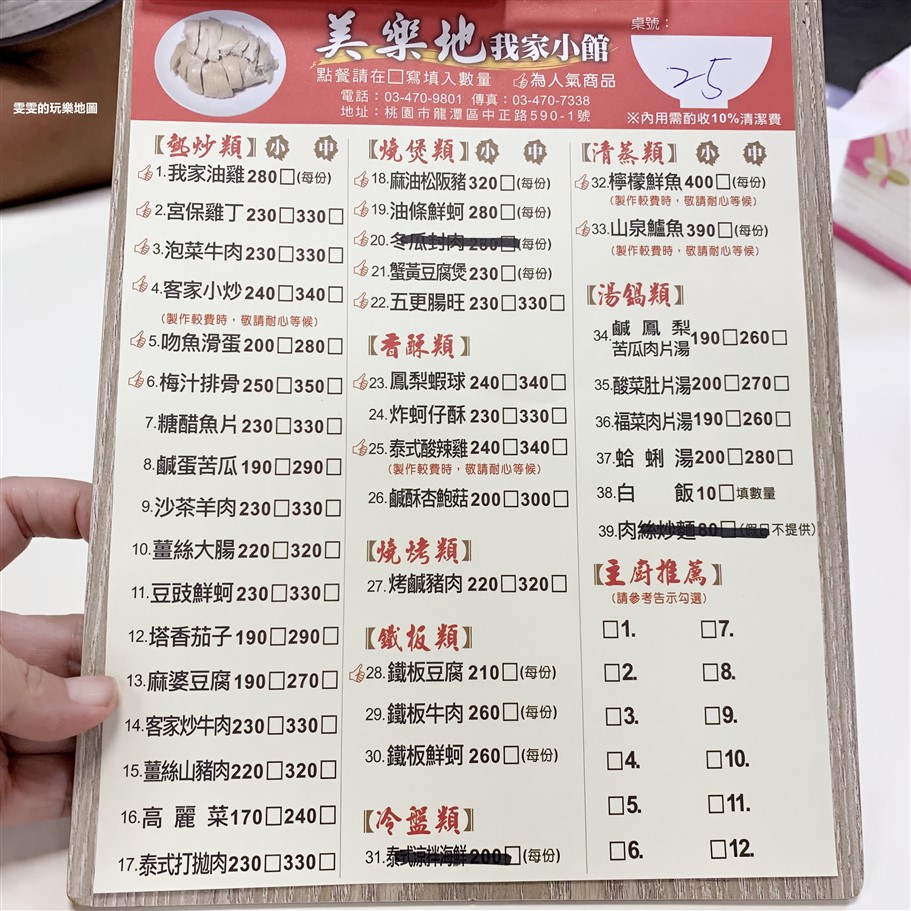 雯雯的玩樂地圖
美樂地我家小館
點餐請在□寫填入數量 為人氣商品
電話：03-470-9801 傳真：03-470-7338
地址：桃園市龍潭區中正路590-1號
桌號：
25
※內用需酌收10%清潔費
【熱炒類】小 中
1.我家油雞280□(每份)
2.宮保雞丁230□330□
3.泡菜牛肉230□330□
4.客家小炒240□340□
(製作較費時，敬請耐心等候)
5.吻魚滑蛋200□280□
6.梅汁排骨250□350□
7.糖醋魚片230□330□
8.鹹蛋苦瓜190□290□
9.沙茶羊肉230□330□
10.薑絲大腸220□320□
11.豆豉鮮蚵230□330□
12.塔香茄子190□290□
13.麻婆豆腐190□270□
14.客家炒牛肉230□330□
15.薑絲山豬肉220□320□
16.高麗菜170□240□
17.泰式打拋肉230□330□
【燒煲類】小 中
18.麻油松阪豬320□(每份)
19.油條鮮蚵280□(每份)
20.冬瓜封肉280□(每份)
21.蟹黃豆腐煲230□(每份)
22.五更腸旺230□330□
【香酥類】
23.鳳梨蝦球240□340□
24.炸蚵仔酥230□330□
25.泰式酸辣雞240□340□
(製作較費時，敬請耐心等候)
26.鹹酥杏鮑菇200□300□
【燒烤類】
27.烤鹹豬肉220□320□
【鐵板類】
28.鐵板豆腐210□(每份)
29.鐵板牛肉260□(每份)
30.鐵板鮮蚵260□(每份)
【冷盤類】
31.泰式涼拌海鮮200□(每份)
【清蒸類】小 中
32.檸檬鮮魚400□(每份)
(製作較費時，敬請耐心等候)
33.山泉鱸魚390□(每份)
(製作較費時，敬請耐心等候)
【湯鍋類】
34.鹹鳳梨苦瓜肉片湯190□260□
35.酸菜肚片湯200□270□
36.福菜肉片湯190□260□
37.蛤蜊湯200□280□
38.白飯10□填數量
39.肉絲炒麵80□(假日不提供)
【主廚推薦】
(請參考告示勾選)
□1. □7.
□2. □8.
□3. □9.
□4. □10.
□5. □11.
□6. □12.